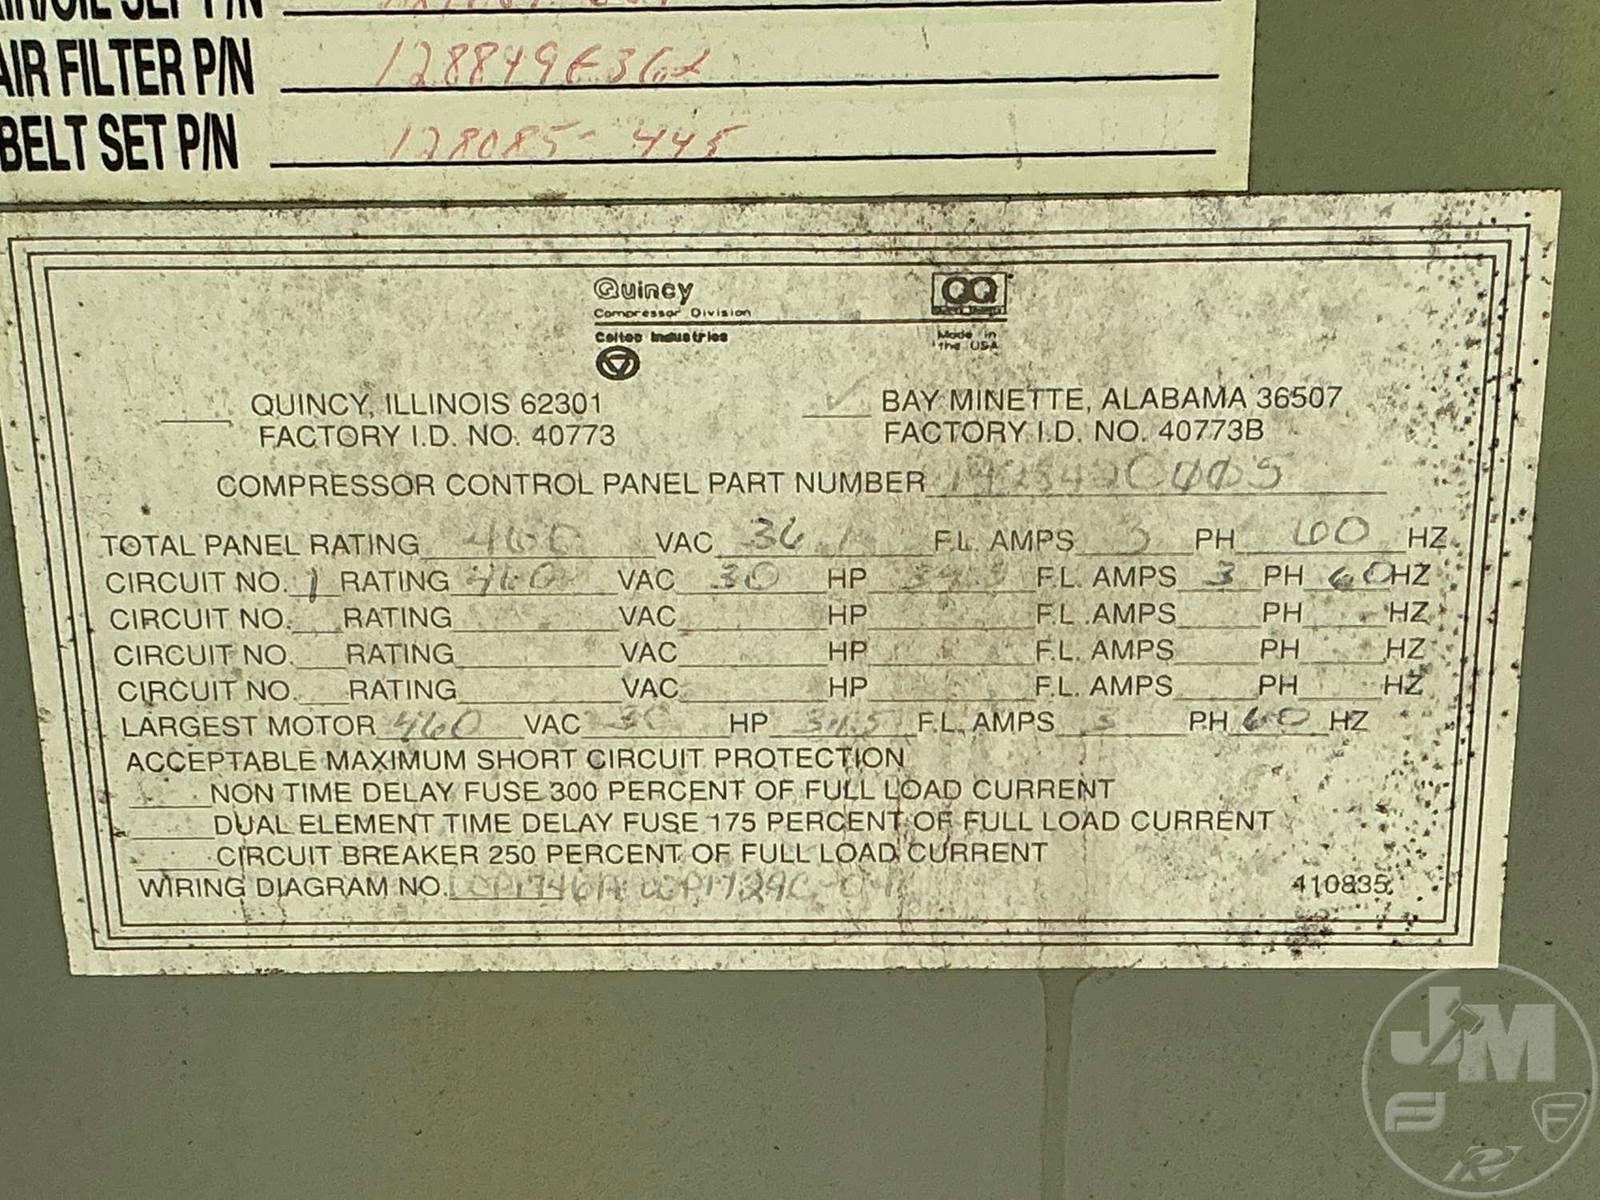 AIR/OIL SEP P/N
AIR FILTER P/N 128849E362
BELT SET P/N 128085-445
Quincy
Compressor Division
Coltec Industries
QQ
Made in
the USA
QUINCY, ILLINOIS 62301
FACTORY I.D. NO. 40773
✓ BAY MINETTE, ALABAMA 36507
FACTORY I.D. NO. 40773B
COMPRESSOR CONTROL PANEL PART NUMBER
TOTAL PANEL RATING 460 VAC 36 F.L. AMPS 3 PH 60 HZ
CIRCUIT NO. 1 RATING 460 VAC 30 HP 34.5 F.L. AMPS 3 PH 60 HZ
CIRCUIT NO. RATING VAC HP F.L. AMPS PH HZ
CIRCUIT NO. RATING VAC HP F.L. AMPS PH HZ
CIRCUIT NO. RATING VAC HP F.L. AMPS PH HZ
LARGEST MOTOR 460 VAC 30 HP 34.5 F.L. AMPS 3 PH 60 HZ
ACCEPTABLE MAXIMUM SHORT CIRCUIT PROTECTION
NON TIME DELAY FUSE 300 PERCENT OF FULL LOAD CURRENT
DUAL ELEMENT TIME DELAY FUSE 175 PERCENT OF FULL LOAD CURRENT
CIRCUIT BREAKER 250 PERCENT OF FULL LOAD CURRENT
WIRING DIAGRAM NO.
410835
JM